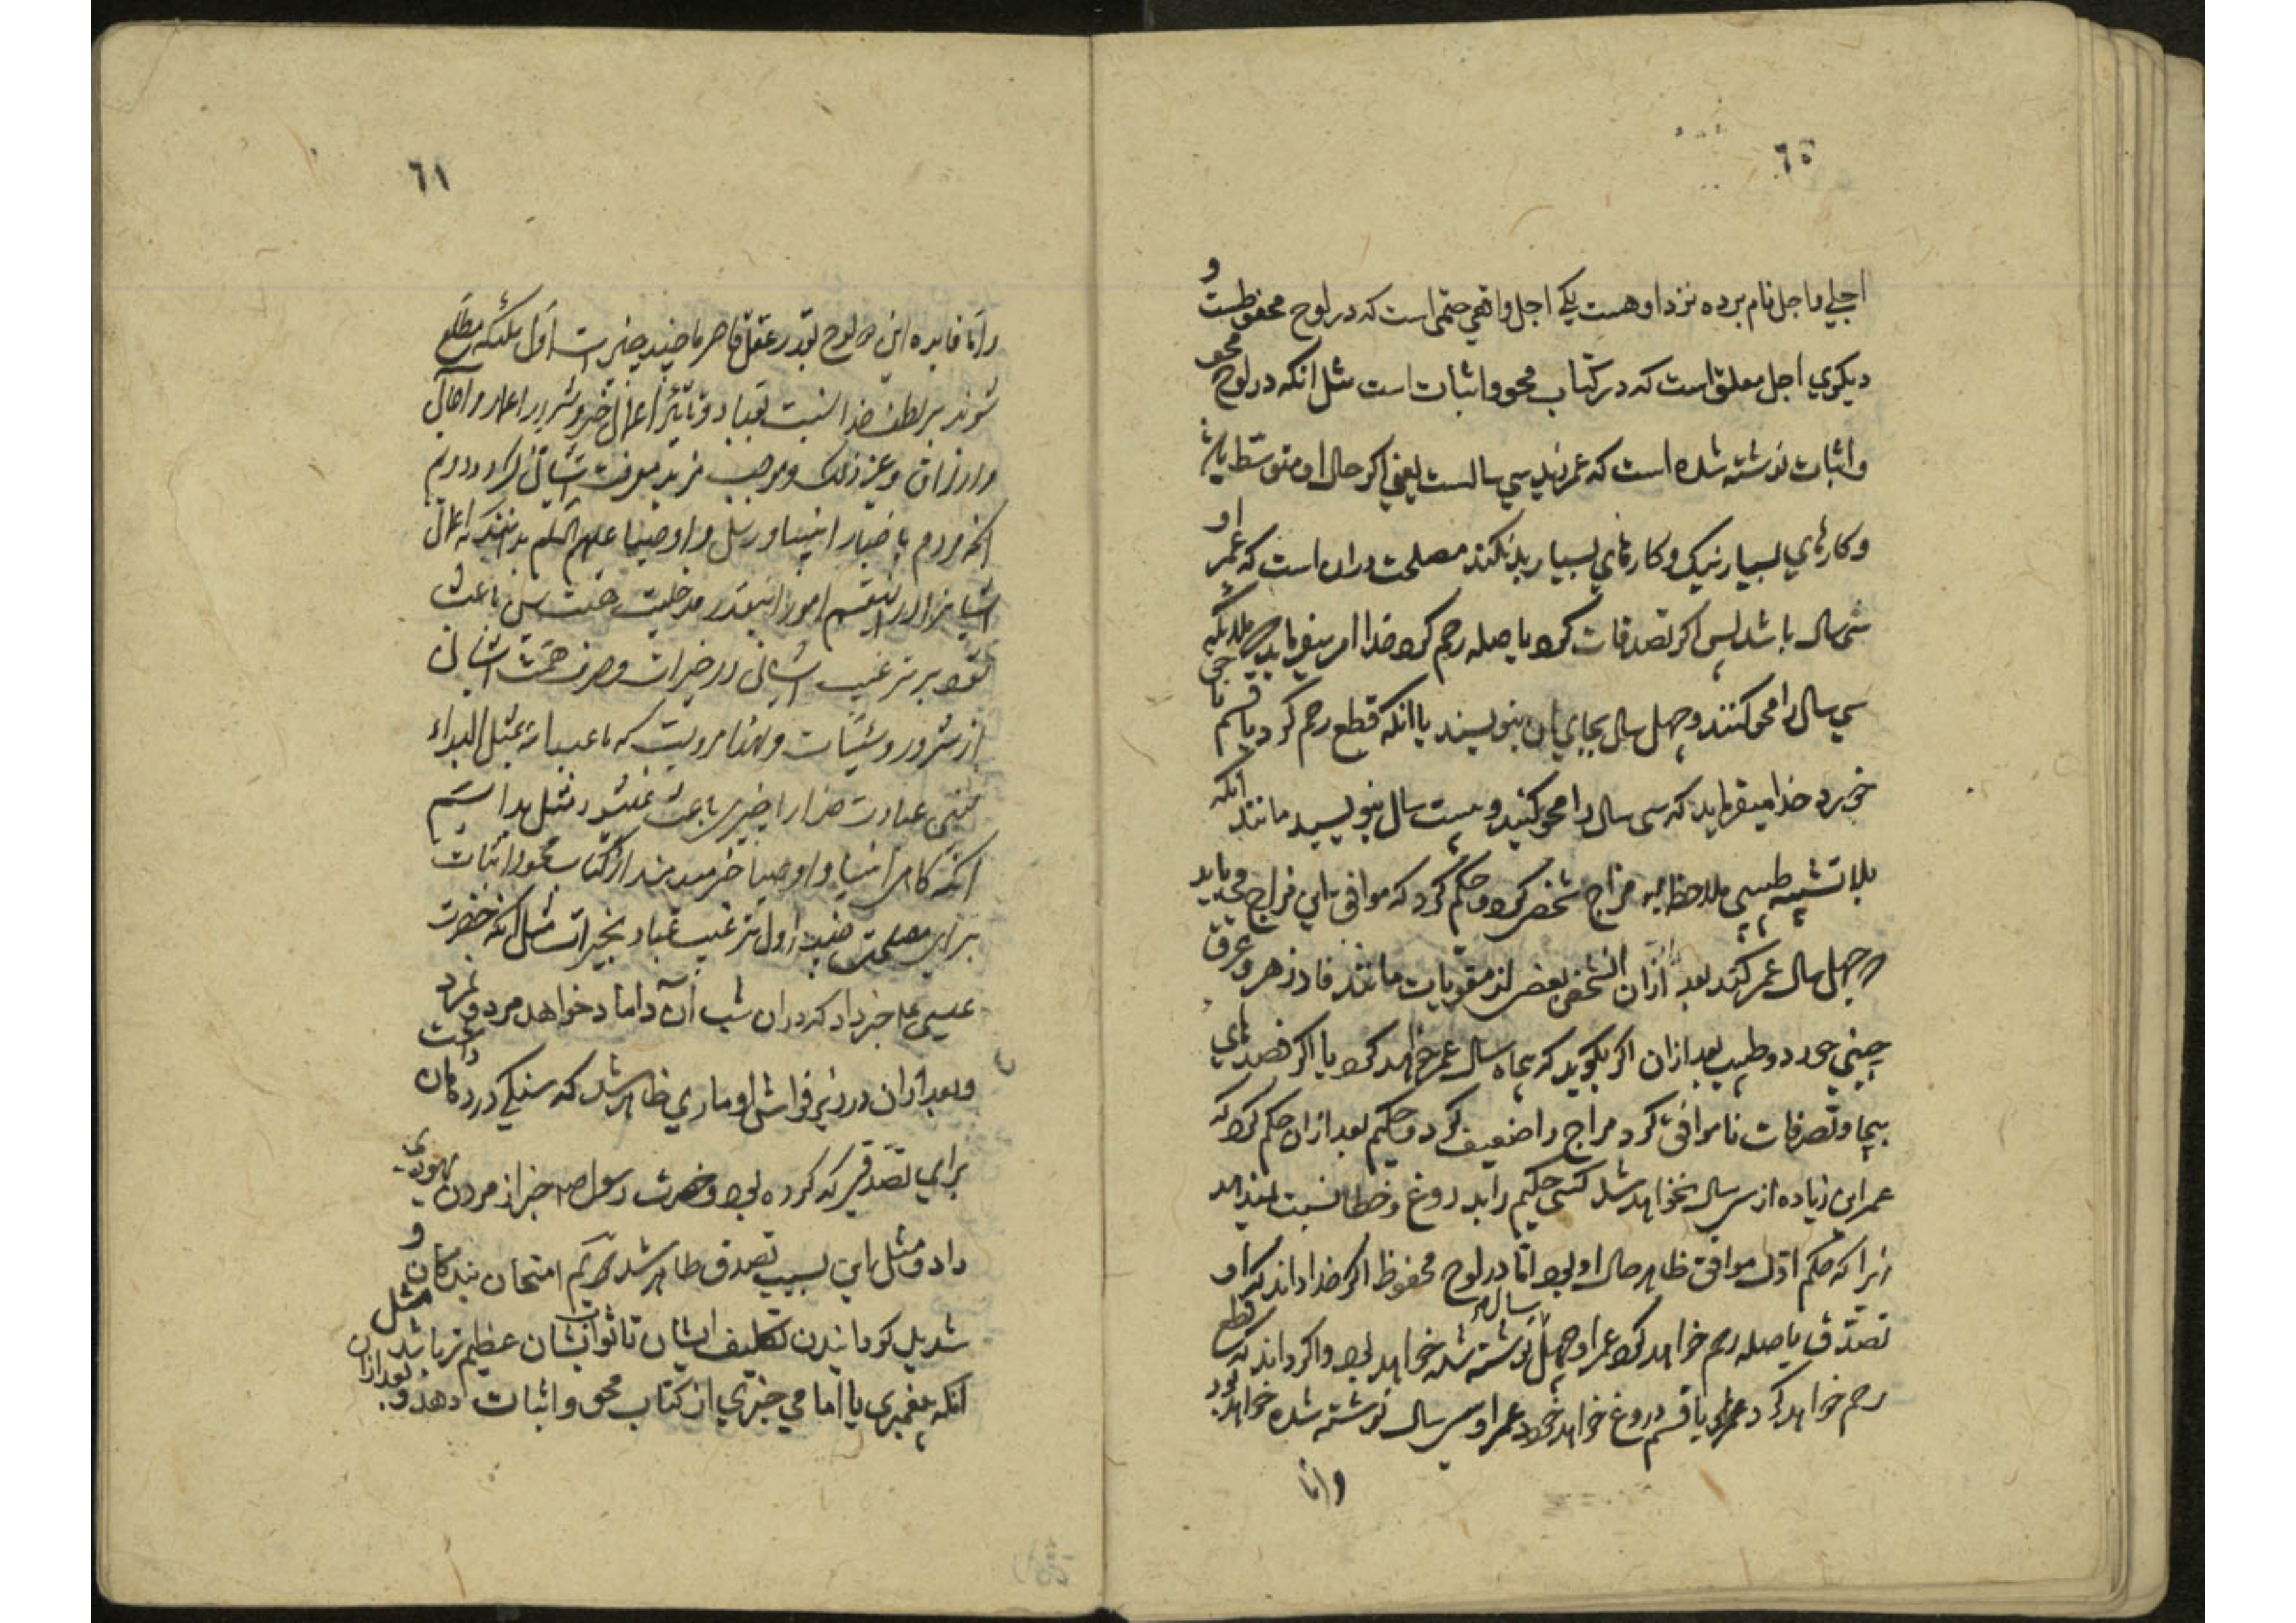 ٦٥
اجلی و اجل نام برده نزد او هست یکی اجل واقعی حتمی است که در لوح محفوظست و
دیکری اجل معلق است که در کتاب محو و اثبات است مثل انکه در لوح محو
و اثبات نوشته شده است که عمر زید سی سالست یعنی اکر حال او متوسط باشد
و کارهای بسیار نیک و کارهای بسیار بد نکند مصلحت دران است که عمر او
سی سال باشد پس اکر تصدقات کرد یا صله رحم کرد خدا امر میفرماید ملائکه
سی سال را محو کنند و چهل سال بجای ان بنویسند یا انکه قطع رحم کرد یا قسم نا حق
خورد خدا میفرماید که سی سال را محو کنید و بیست سال بنویسید مانند انکه
بلا تشبیه طبیبی ملاحظه مزاج شخصی کرد و حکم کرد که موافق این مزاج می باید
چهل سال عمر کند بعد ازان انشخص بعضی از مقویات مانند فادزهر و عرق
چینی خورد و طبیب بعد ازان اکر بکوید که پنجاه سال عمر خواهد کرد یا اکر فصدهای
بیجا و تصرفات ناموافق کرد مزاج را ضعیف کرد و حکیم بعد ازان حکم کرد که
عمر این زیاده از سی سال نخواهد شد کسی حکیم را به دروغ و خطا نسبت نمیدهد
زیرا که حکم اول موافق ظاهر حال او بود اما در لوح محفوظ اکر خدا داند که او
تصدق یا صله رحم خواهد کرد عمر او چهل سال نوشته شده خواهد بود و اکر داند که قطع
رحم خواهد کرد یا قسم دروغ خواهد خورد عمر او سی سال نوشته شده خواهد بود
و اما
٦١
و اما فایده این دو لوح بقدر عقل قاصر ما چند چیز است اول ملئکه مطلع
شوند بر لطف خدا نسبت بعباد و تاثیر اعمال خیر و شر در اعمار و اجال
و ارزاق و غیر ذلک و موجب مزید معرفت ایشان کردد دویم
انکه مردم باخبار انبیا و رسل و اوصیا علیهم السلم بدانند که اعمال
ایشانرا در اینقسم امور اینقدر مدخلیت هست پس باعث
شود بر ترغیب ایشان در خیرات و صرف همت ایشان
از شرور و سیئات و لهذا مرویست که ما عبد الله بمثل البداء
یعنی عبادت خدا را چیزی باعث نمیشود مثل بدا سیم
انکه کاهی انبیا و اوصیا خبر میدهند از کتاب محو و اثبات
برای مصلحتی چند اول ترغیب عباد بخیرات مثل انکه حضرت
عیسی ع خبر داد که دران شب آن داماد خواهد مرد و نمرد
و بعد ازان در زیر فراش او ماری ظاهر شد که سنکی در دهان داشت
برای تصدقی که کرده بود و حضرت رسول ص خبر از مردن یهودی
داد و مثل این بسبب تصدق ظاهر شد دویم امتحان بندکان و
شدید کردانیدن تکلیف ایشان تا ثواب ایشان عظیم تر باشد مثل
انکه پیغمبری یا امامی خبری از کتاب محو و اثبات دهد و بعد ازان